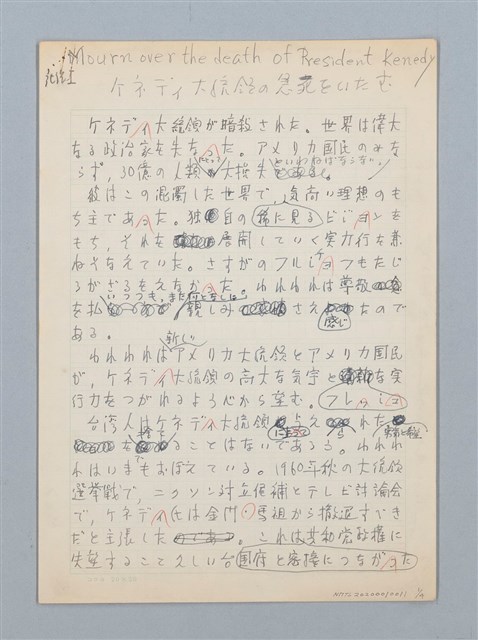 Mourn over the death of President Kenedy
ケネディ大統領の急死をいたむ
ケネディ大統領が暗殺された。世界は偉大
なる政治家を失なった。アメリカ国民のみな
といわねばならない。
らず、30億の人類の大損失
彼はこの混濁した世界で、気高い理想のも
ち主であった。独自の稀に見るビジョンを
もち、それを展開していく実力行を兼
ねそなえていた。さすがのフルシチョフもたじ
ろがざるをえなかった。われわれは尊敬
いつつも、また何となしに
を払 親しみの さえ感じ なので
ある。
新しい
われわれはアメリカ大統領とアメリカ国民
が、ケネディ大統領の高大な気宇と な実
行力をつがれるよう心から望む。
台湾人はケネディ大統領 与え られた
を ることはないであろう。われわ
れはいまもおぼえている。1960年秋の大統領
選挙戦で、ニクソン対立候補とテレビ討論会
で、ケネディ氏は金門・馬祖から撤退すべき
だと主張した 。これは共和党政権に
失望すること久しい台 と密接につながった
NMTL20200010011